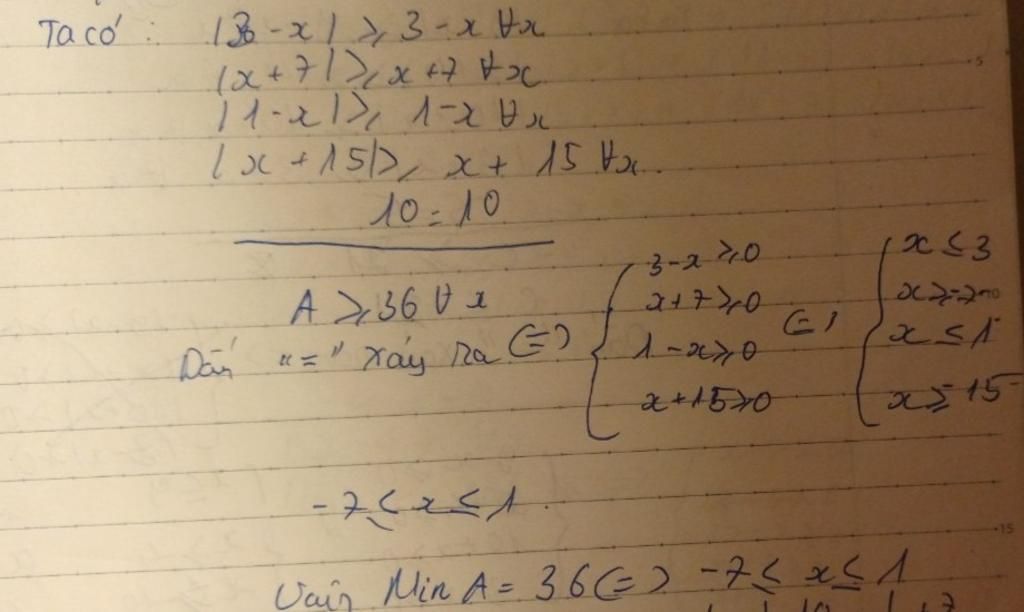 Ta có : |3-x| ≥ 3-x ∀x
|x+7| ≥ x+7 ∀x
|1-x| ≥ 1-x ∀x
|x+15| ≥ x+15 ∀x
10=10
A ≥ 36 ∀x
Dấu "=" xảy ra (=)
3-x ≥ 0
x+7 ≥ 0
1-x ≥ 0
x+15 ≥ 0
(=)
x ≤ 3
x ≥ -7
x ≤ 1
x ≥ -15
-7 ≤ x ≤ 1
Vậy Min A = 36 (=) -7 ≤ x ≤ 1